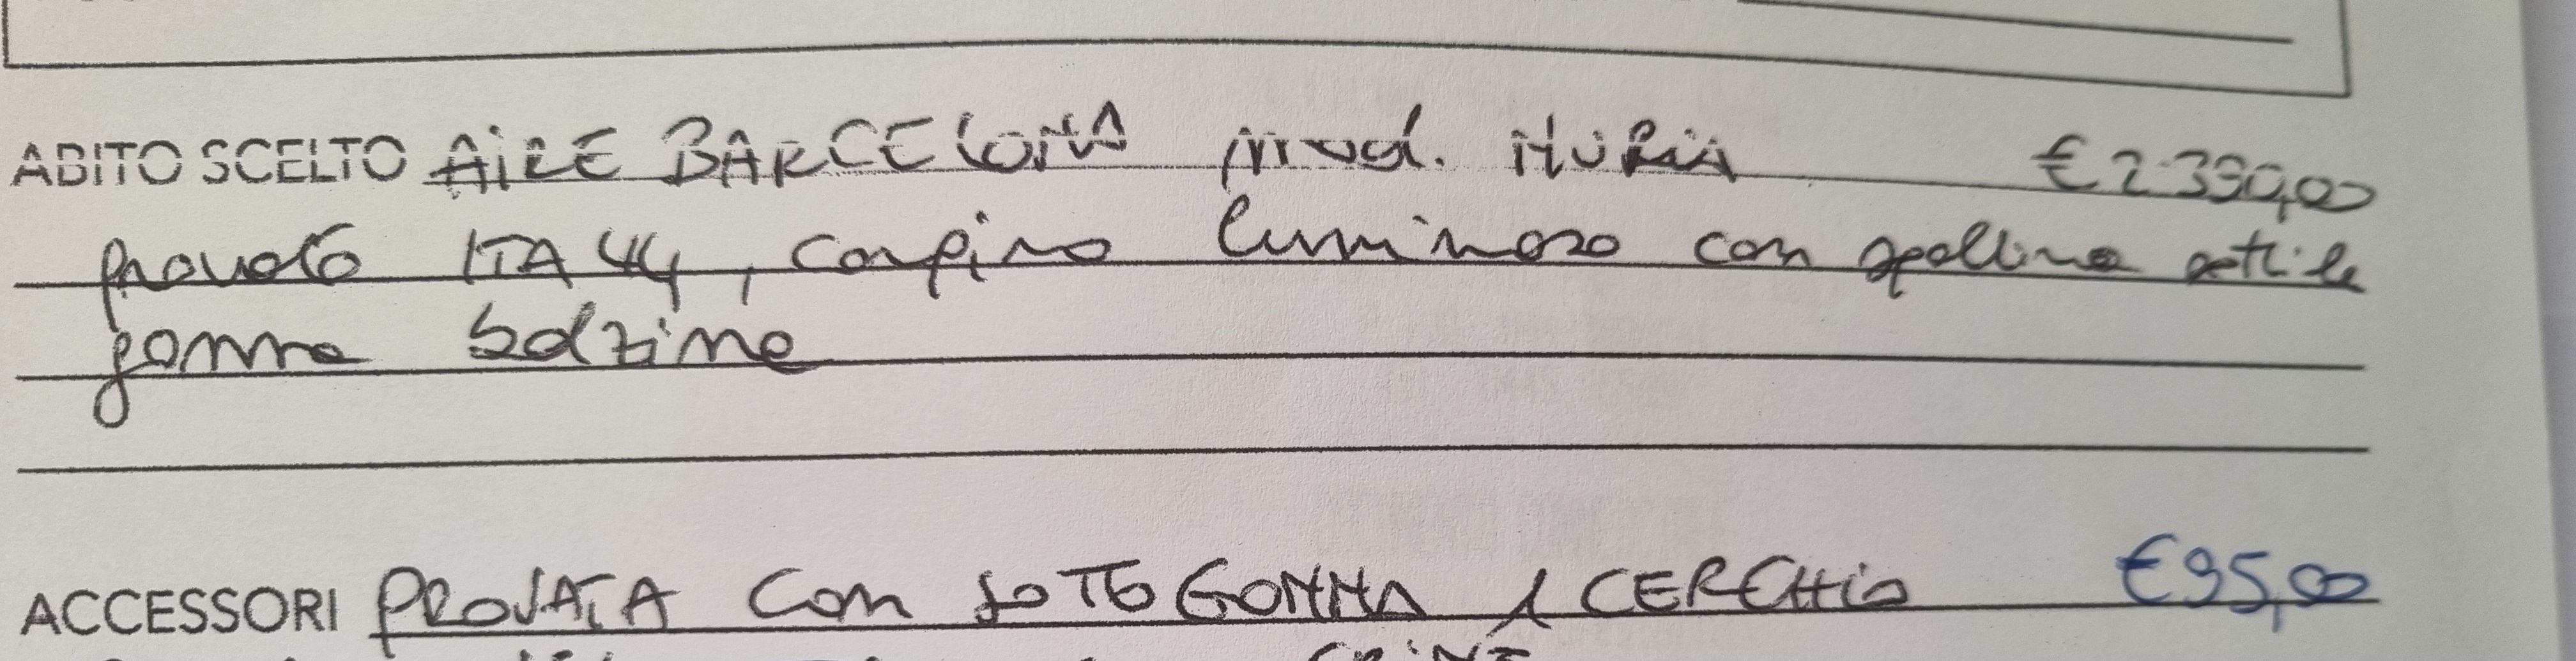 ABITO SCELTO AIRE BARCELONA mod. NURIA € 2.390,00
provato ITA 44, corpino luminoso con spallina sottile
gonna balzine
ACCESSORI PROVATA CON SOTTOGONNA 1 CERCHIO €95,00